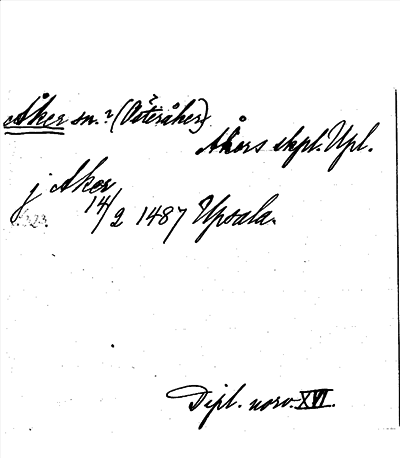 Åker sn.? (Österåker)
Åkers skpl. Upl.
j Aker
14/2 1487 Upsala.
Dipl. norv. XVI.